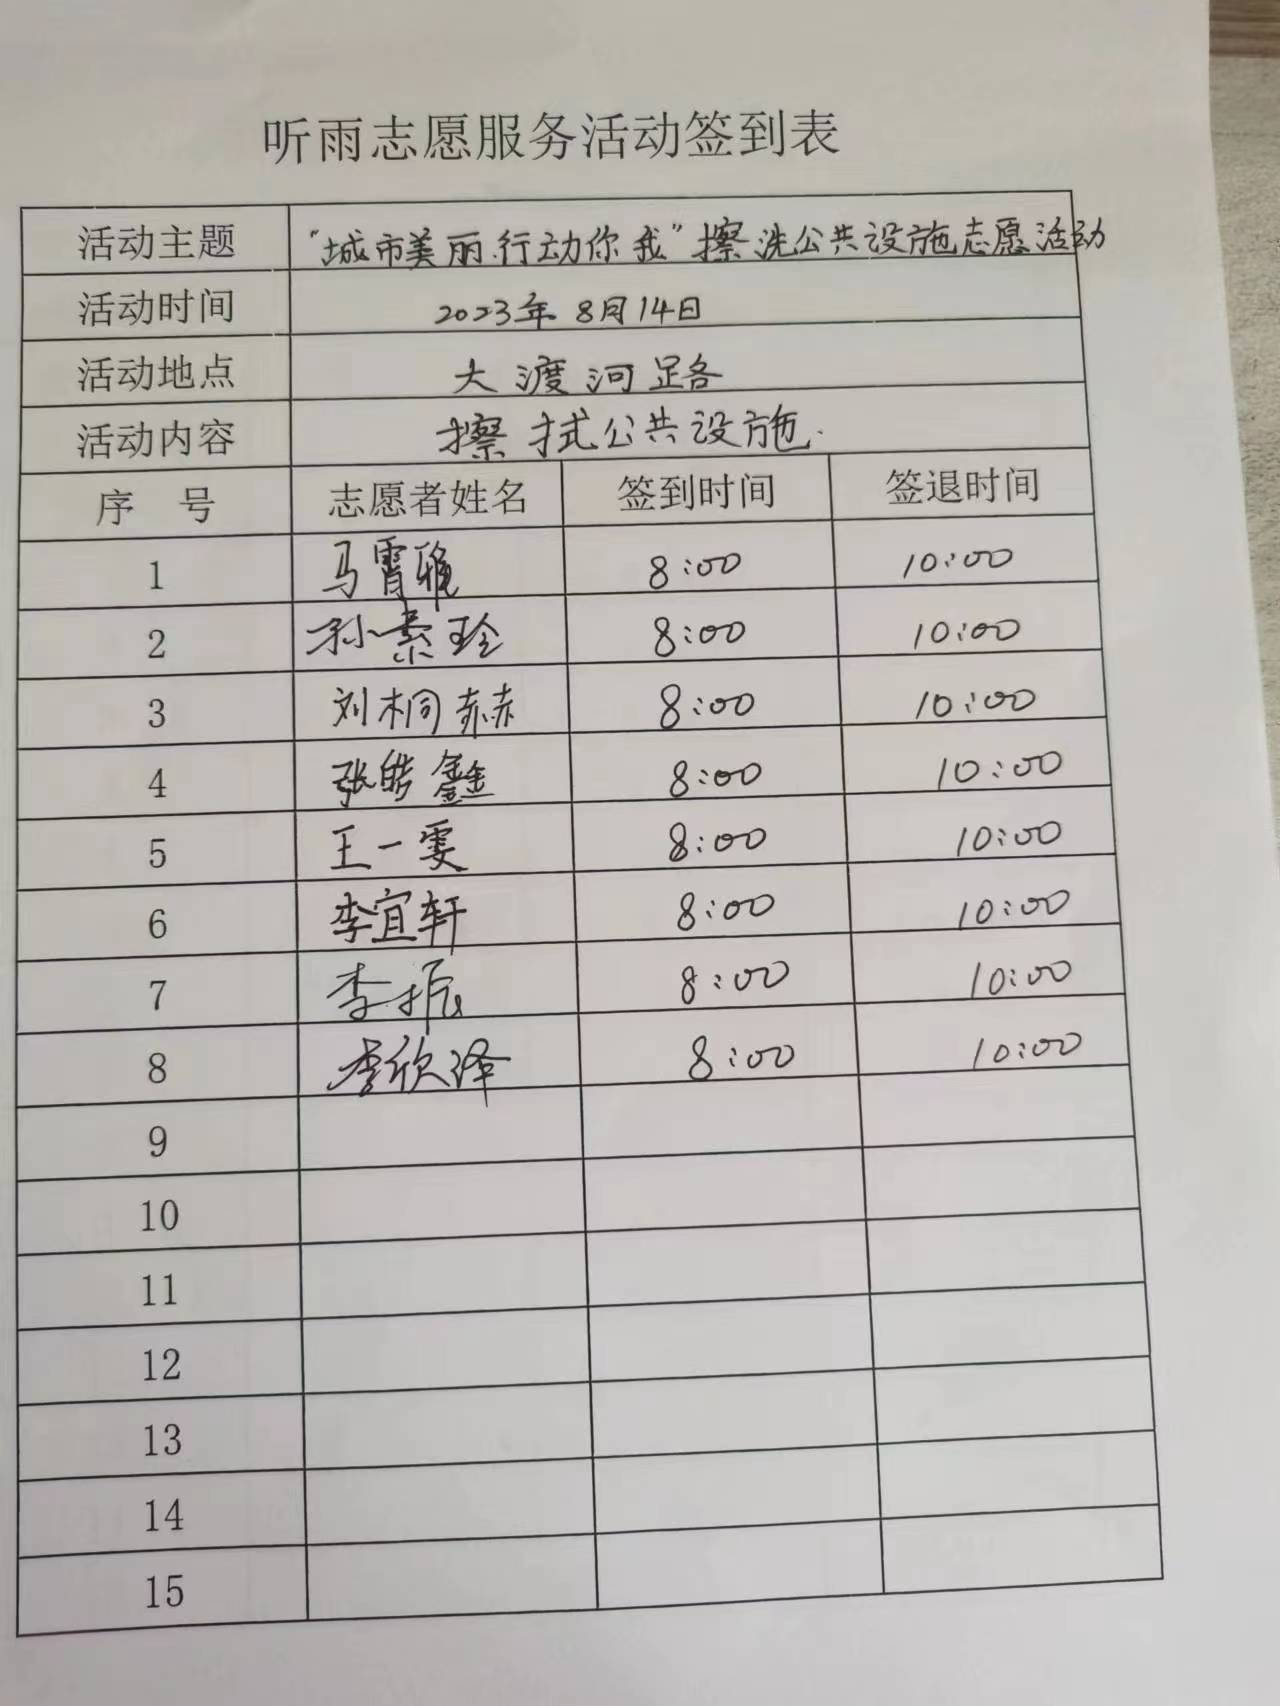 听雨志愿服务活动签到表
活动主题 "城市美丽.行动你我"擦洗公共设施志愿活动
活动时间 2023年8月14日
活动地点 大渡河路
活动内容 擦拭公共设施.
序 号 志愿者姓名 签到时间 签退时间
1 马霄雅 8:00 10:00
2 孙素玲 8:00 10:00
3 刘桐赫 8:00 10:00
4 张皓鑫 8:00 10:00
5 王一雯 8:00 10:00
6 李宜轩 8:00 10:00
7 李振 8:00 10:00
8 李欣泽 8:00 10:00
9
10
11
12
13
14
15